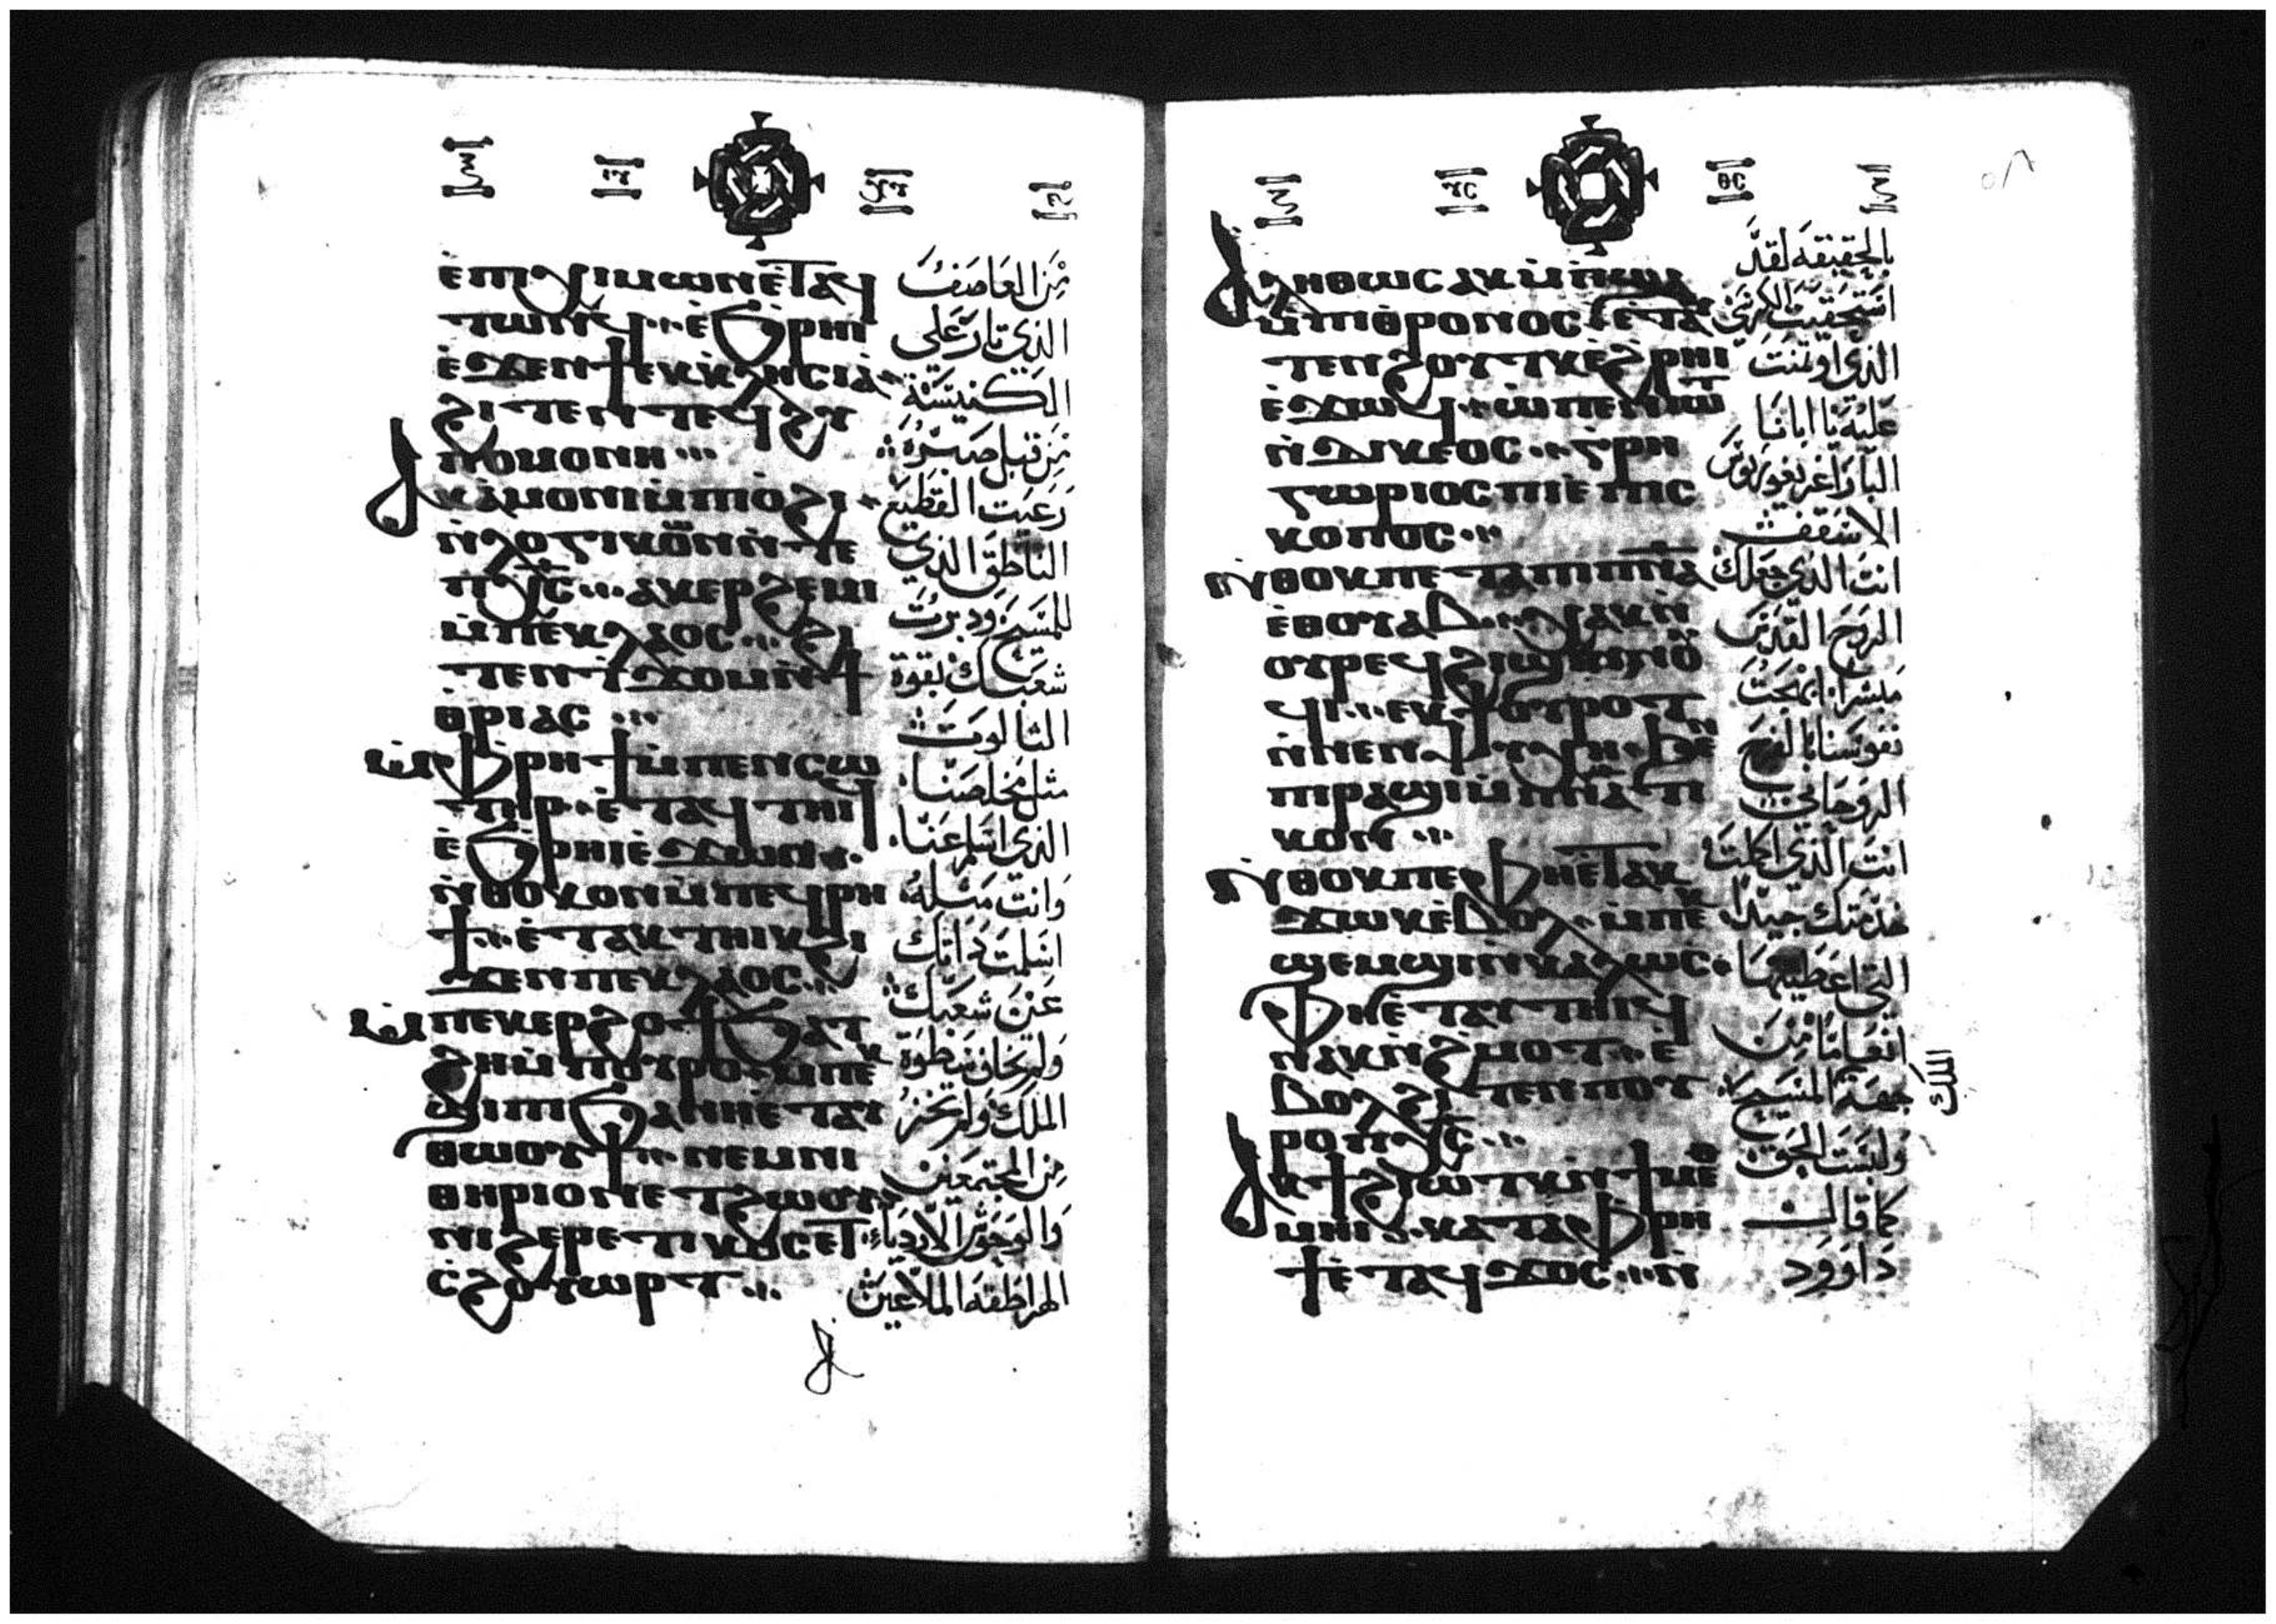 ⲉ̀ⲡⲓⲭⲓⲙⲱⲛ ⲉ̀ⲧⲁϥ
ⲧⲱⲛϥ ⲉ̀ϧⲣⲏⲓ
ⲉ̀ϫⲉⲛ ϯⲉⲕⲕⲗⲏⲥⲓⲁ
ϩⲓⲧⲉⲛ ⲧⲉϥϩⲩ
ⲡⲟⲙⲟⲛⲏ
ⲁⲕⲁ̀ⲙⲟⲛⲓ ⲙ̀ⲡⲓⲟ̀ϩⲓ
ⲛ̀ⲗⲟⲅⲓⲕⲟⲛ ⲛ̀ⲧⲉ
ⲡⲭ̅ⲥ̅ ⲁⲕⲉⲣϩⲉⲙⲓ
ⲙ̀ⲡⲉⲕⲗⲁⲟⲥ ϩⲓ
ⲧⲉⲛ ϯϫⲟⲙ ⲛ̀ϯ
ⲑⲣⲓⲁⲥ
ⲙ̀ⲫⲣⲏϯ ⲙ̀ⲡⲉⲛⲥⲱ
ⲧⲏⲣ ⲉ̀ⲧⲁϥⲧⲏⲓϥ
ⲉ̀ϧⲣⲏⲓ ⲉ̀ϫⲱⲛ
ⲛ̀ⲑⲟⲕ ϩⲟⲛ ⲙ̀ⲡⲉϥⲣⲏ
ϯ ⲉ̀ⲧⲁⲕⲧⲏⲓⲕ ϩⲓ
ϫⲉⲛ ⲡⲉⲕⲗⲁⲟⲥ
ⲙ̀ⲡⲉⲕⲉⲣϩⲟϯ ϧⲁⲧ
ϩⲏ ⲙ̀ⲡⲟⲩⲣⲟ ⲙ̀ⲡⲉⲕ
ϣⲓⲡⲓ ϧⲁ ⲛⲏⲉ̀ⲧⲁⲩ
ⲑⲱⲟⲩϯ ⲛⲉⲙ ⲛⲓ
ⲑⲏⲣⲓⲟⲛ ⲉⲧϩⲱⲟⲩ
ⲛⲓϩⲉⲣⲉⲧⲓⲕⲟⲥ ⲉⲧ
ⲥ̀ϩⲟⲩⲱⲣⲧ
من العاصف
الذي ثار على
الكنيسة
من قبل صبره
رعيت القطيع
الناطق الذي
للمسيح ودبرت
شعبك بقوة
الثالوث
مثل مخلصنا
الذي اسلم عنا
وانت مثله
اسلمت ذاتك
عن شعبك
ولم تخاف سطوة
الملك ولم تخز
من المجتمعين
والوحوش الاردياء
الهراطقة الملاعين
ⲁⲗⲏⲑⲱⲥ ⲁⲕⲙ̀ⲡϣⲁ
ⲙ̀ⲡⲓⲑⲣⲟⲛⲟⲥ ⲉ̀ⲧⲁ
ⲧⲉⲛϩⲟⲩⲧⲕ ⲉ̀ϩⲣⲏⲓ
ⲉ̀ϫⲱϥ ⲱ̀ ⲡⲉⲛⲓⲱⲧ
ⲛ̀ⲇⲓⲕⲉⲟⲥ ⲅⲣⲏ
ⲅⲱⲣⲓⲟⲥ ⲡⲓⲉ̀ⲡⲓⲥ
ⲕⲟⲡⲟⲥ
ⲛ̀ⲑⲟⲕ ⲡⲉⲧⲁ ⲡⲓⲡ̅ⲛ̅ⲁ̅
ⲉ̀ⲑⲟⲩⲁⲃ ⲭⲁⲕ ⲛ̀
ⲟⲩⲣⲉϥϩⲓϣⲉⲛⲛⲟⲩ
ϥⲓ ⲉⲕϯⲟⲩⲣⲟⲧ
ⲛ̀ⲛⲉⲛⲯⲩⲭⲏ ϧⲉⲛ
ⲡⲓⲣⲁϣⲓ ⲙ̀ⲡⲛⲁⲧⲓ
ⲕⲟⲛ
ⲛ̀ⲑⲟⲕ ⲡⲉ ⲫⲏⲉ̀ⲧⲁⲕ
ϫⲱⲕ ⲉ̀ⲃⲟⲗ ⲙ̀ⲡⲉⲕ
ϣⲉⲙϣⲓ ⲛ̀ⲕⲁⲗⲱⲥ
ⲫⲏⲉ̀ⲧⲁⲩⲧⲏⲓϥ
ⲛⲁⲕ ⲛ̀ϩⲙⲟⲧ ⲉ̀
ⲃⲟⲗ ϩⲓⲧⲉⲛ ⲡⲟⲩ
ⲣⲟ ⲡⲭ̅ⲥ̅
ⲁⲕϯϩⲓⲱⲧⲕ ⲛ̀ϯⲙⲉⲑ
ⲙⲏⲓ ⲕⲁⲧⲁ ⲫⲣⲏ
ϯ ⲉ̀ⲧⲁϥϫⲟⲥ ⲛ̀
بالحقيقة لقد
استحقيت الكرسي
الذي اوتمنت
عليه يا ابانا
البار اغريغوريوس
الاسقف
انت الذي جعلك
الروح القدس
مبشرا ابهجت
نفوسنا بالفرح
الروحاني
انت الذي اكملت
خدمتك جيدا
التي اعطيتها
انعاما من
جهة المسيح
الملك
ولبست الحق
كما قال
داوود